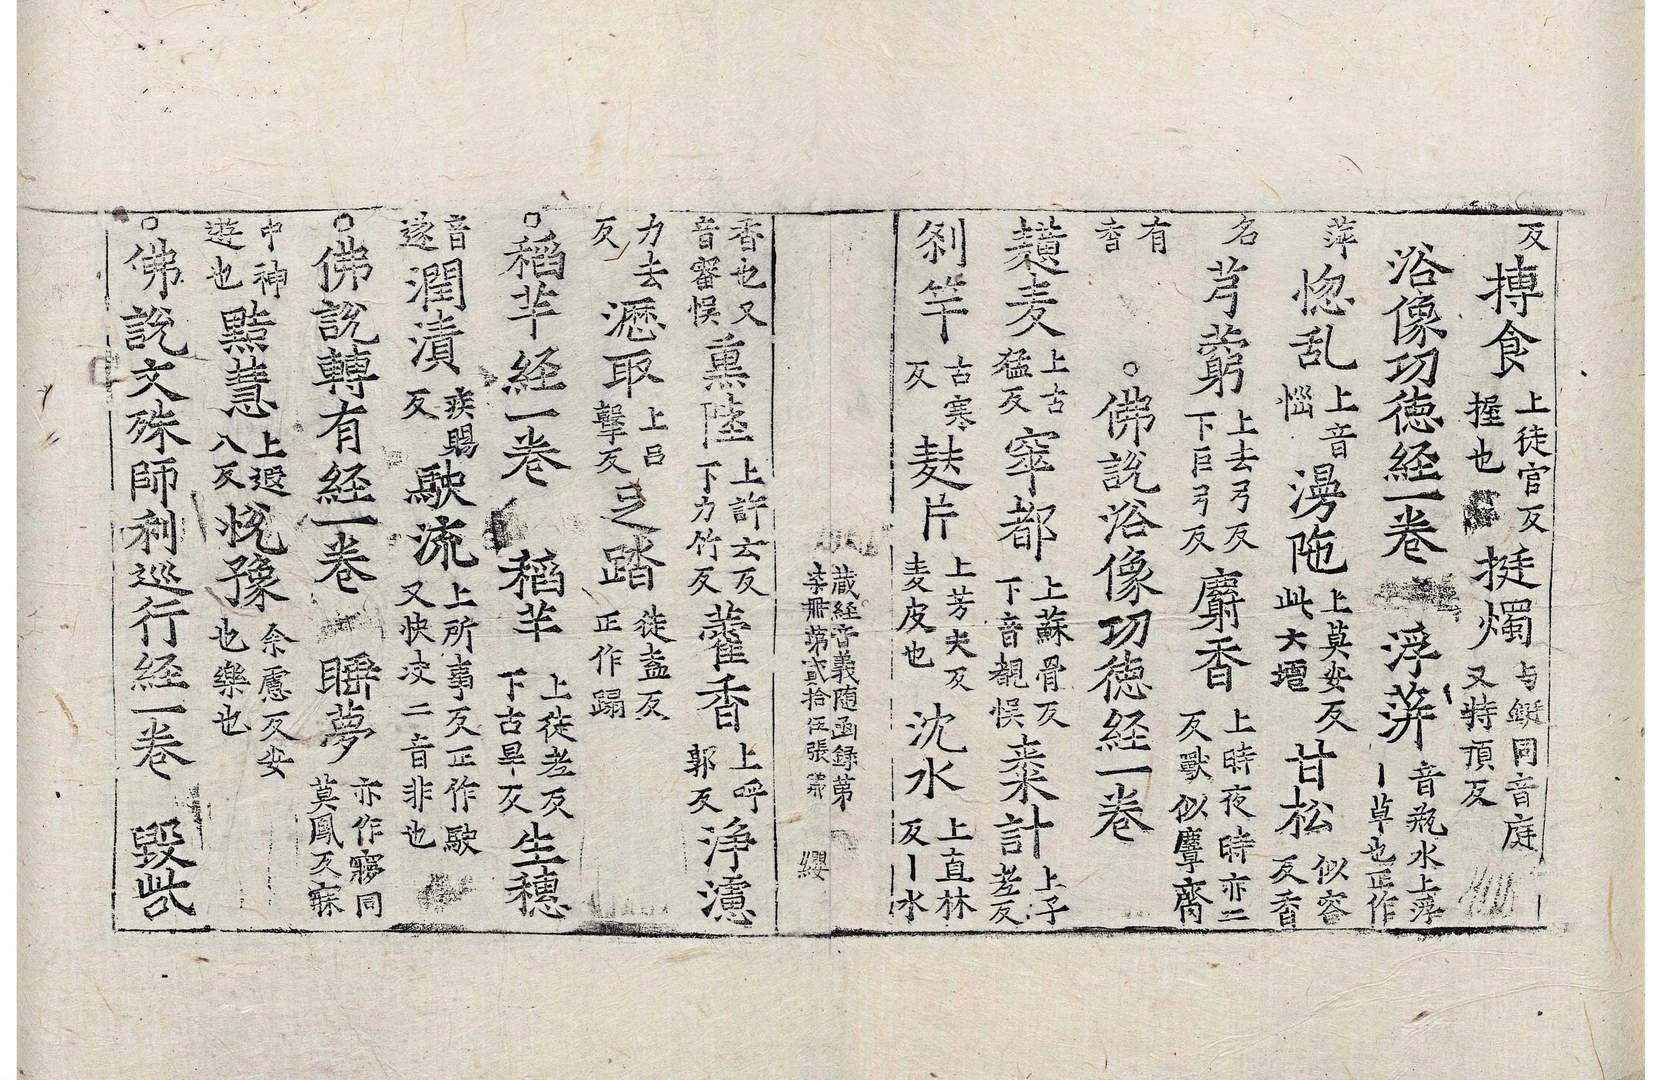 反 摶食 上徒官反握也 挺燭 与艇同音庭又特頂反
浴像功徳経一卷 浮蓱 音瓶水上浮丨草也正作
萍 惚乱 上音惱 澷陁 上莫安反此大壇 甘松 似容反香
名 芎藭 上去弓反下巨弓反 麝香 上時夜時亦二反獸似麞齊
有香 ○佛說浴像功徳経一卷
麦 上古猛反 窣都 上蘇骨反下音覩悮 棗計 上子老反
剎竿 古寒反 麸片 上芳夫反麦皮也 沈水 上直林反丨水
藏経音義随函録第
柒冊第貳拾伍張 纓
香也又音審悮 熏陸 上許云反下力竹反 藿香 上呼郭反 浄濾
力去反 瀝取 上吕擊反 乏踏 徒盍反正作蹋
○稻芉経一卷 稻芉 上徒老反下古旱反 生穗
音遂 潤漬 疾賜反 駛流 上所事反正作駛又快决二音非也
○佛說轉有経一卷 夢 亦作同莫鳳反寐
中神遊也 黠慧 上遐八反 悅豫 余慮反安也樂也
○佛說文殊師利巡行経一卷 毀呰